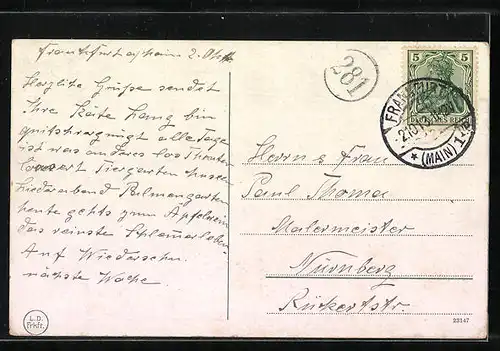 Frankfurt a/Main 2. Okt
Herzliche Grüße sendet
Ihre Käte Hang bin
quitschvergnügt alle Tage
ist was anderes los Theater
Concert Tiergarten Museen
Niederabend Palmengarten
heute gehts zum Äpfelwein
das reinste Schlemerleben
Auf Wiedersehn
nächste Woche
281
5 5
DEUTSCHES REICH
FRANKFURT
2.10.
* (MAIN) 1
Herrn & Frau
Paul Thoma
Malermeister
Nürnberg
Rückertstr.
L.D.
Frkfr.
23147